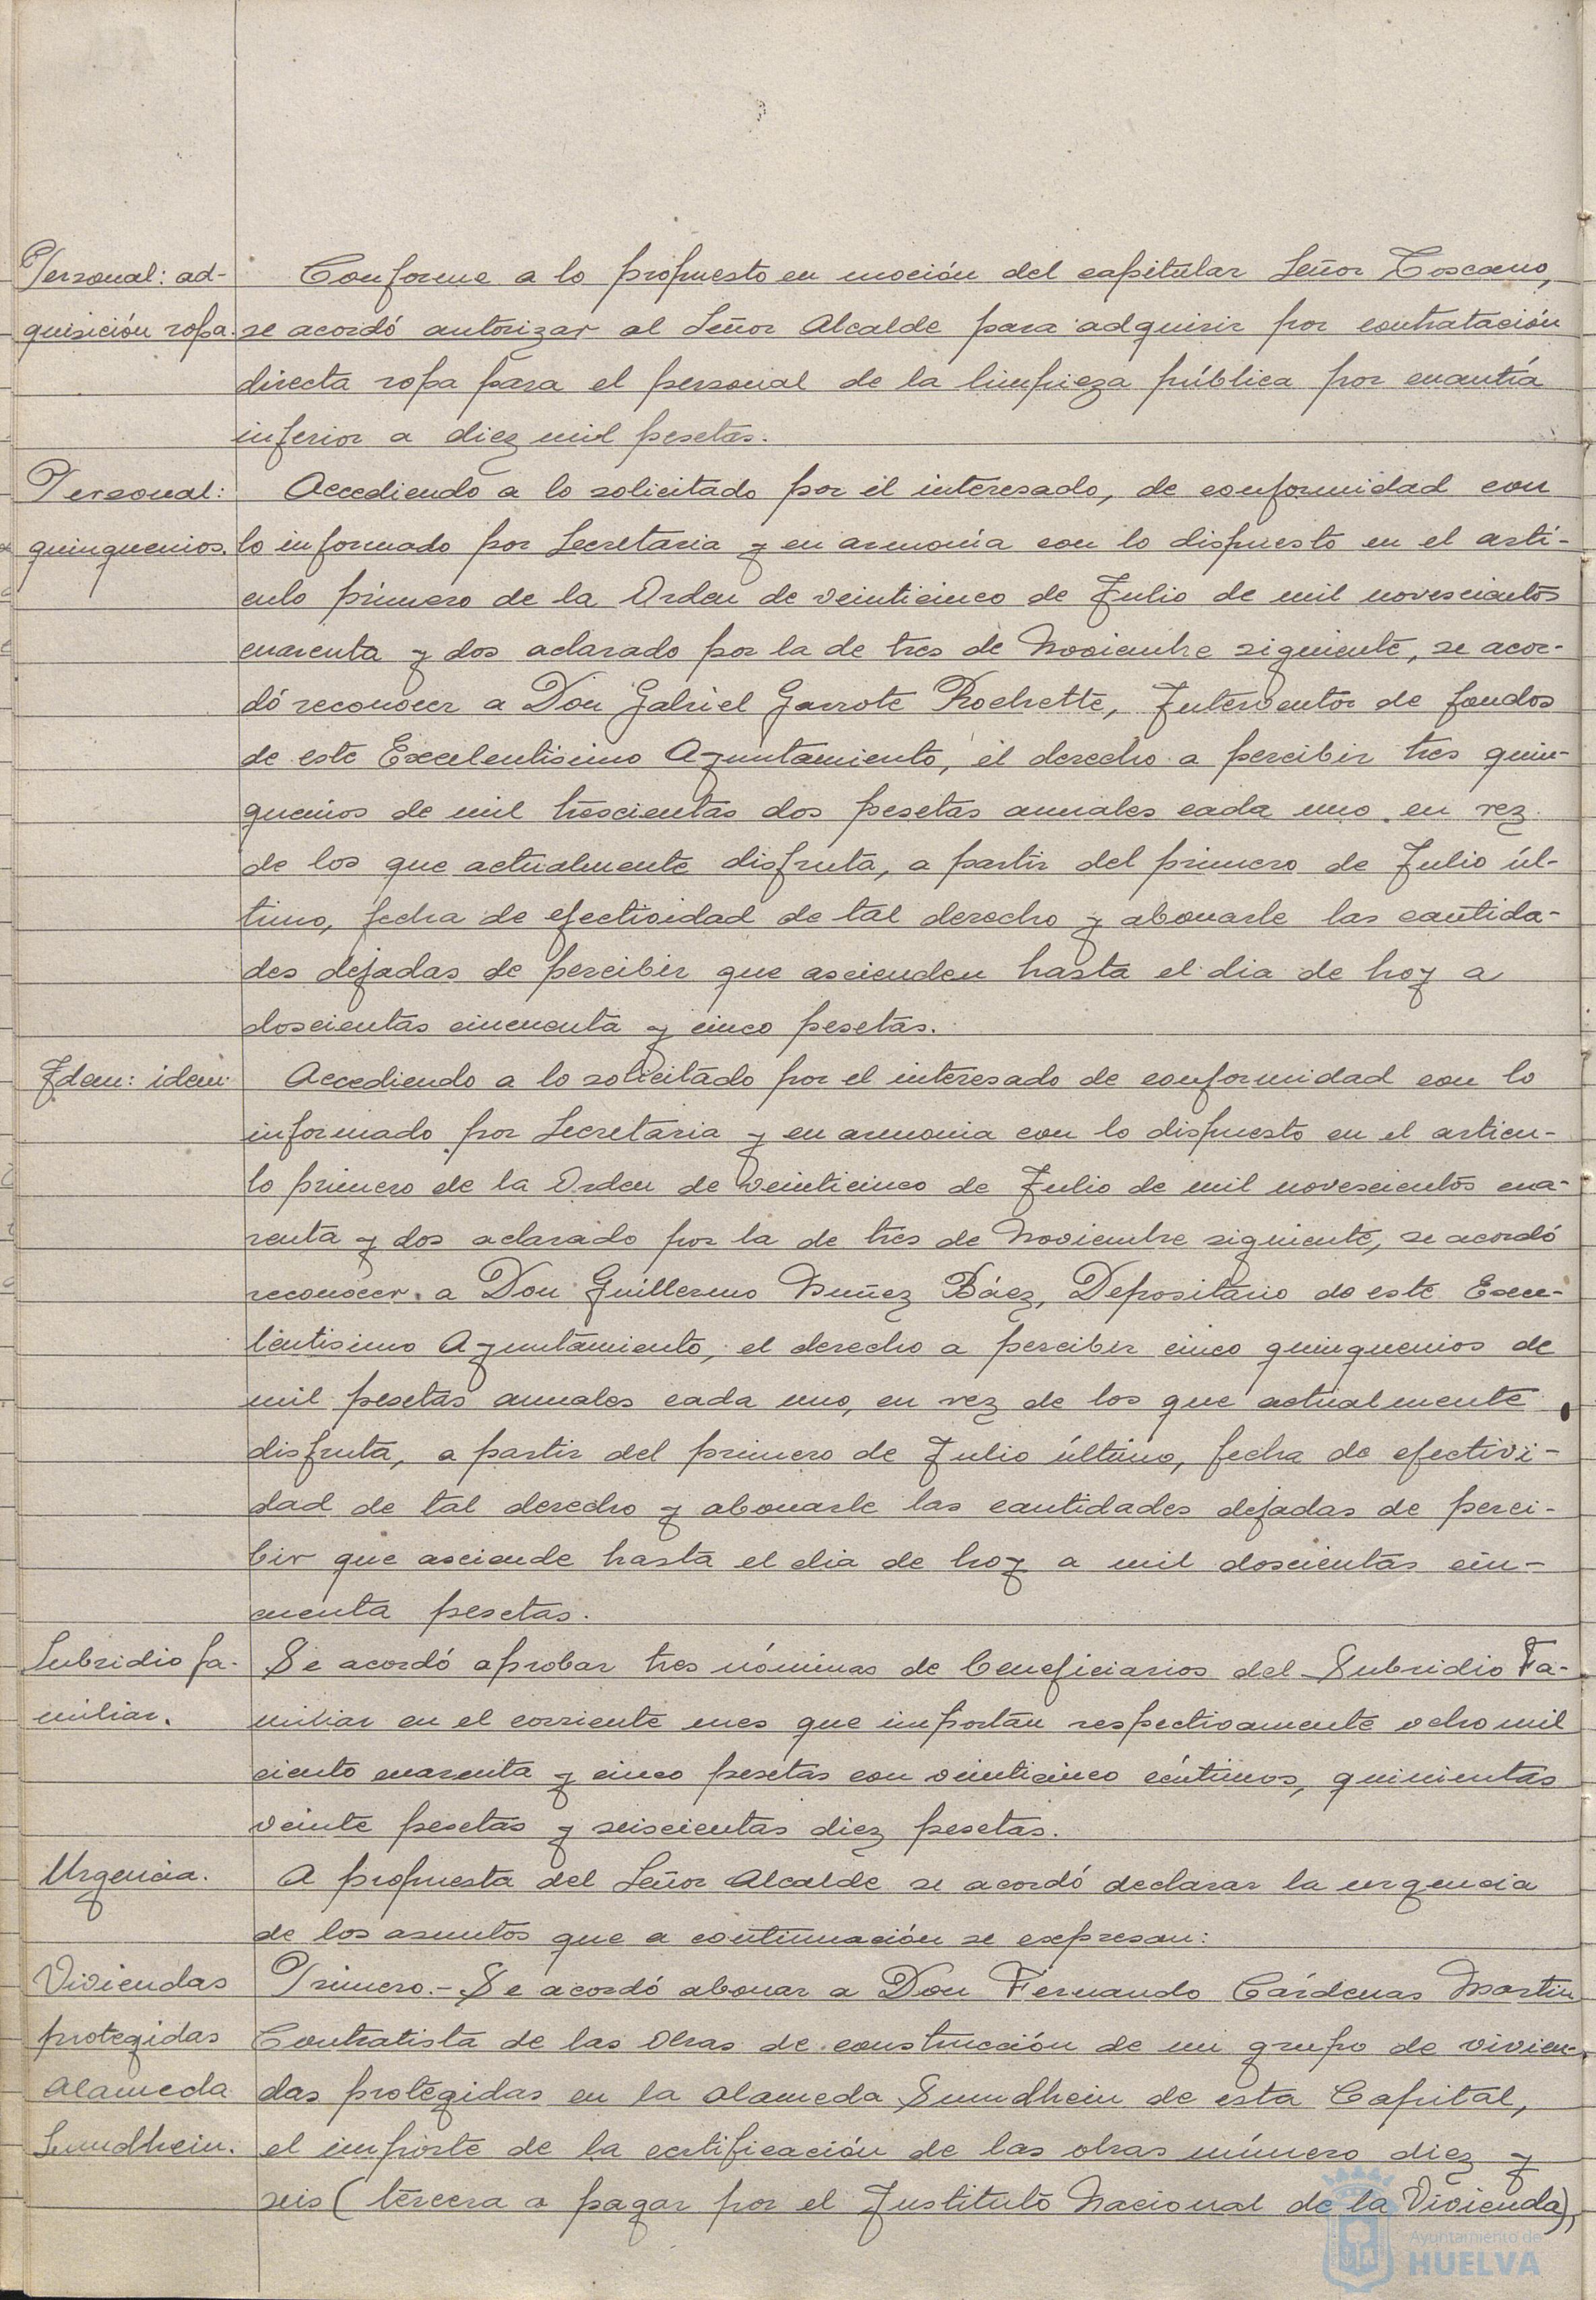 Personal: ad-
quisición ropa.
Conforme a lo propuesto en moción del capitular Señor Toscano,
se acordó autorizar al Señor Alcalde para adquirir por contratación
directa ropa para el personal de la limpieza pública por cuantía
inferior a diez mil pesetas.
Personal:
quinquenios.
Accediendo a lo solicitado por el interesado, de conformidad con
lo informado por Secretaria y en armonía con lo dispuesto en el arti-
culo primero de la Orden de veinticinco de Julio de mil novescientos
cuarenta y dos aclarado por la de tres de Noviembre siguiente, se acor-
dó reconocer a Don Gabriel Garrote Rochette, Interventor de fondos
de este Excelentisimo Ayuntamiento, el derecho a percibir tres quin-
quenios de mil trescientas dos pesetas anuales cada uno en vez
de los que actualmente disfruta, a partir del primero de Julio úl-
timo, fecha de efectividad de tal derecho y abonarle las cantida-
des dejadas de percibir que ascienden hasta el dia de hoy a
doscientas cincuenta y cinco pesetas.
Idem: idem:
Accediendo a lo solicitado por el interesado de conformidad con lo
informado por Secretaria y en armonia con lo dispuesto en el articu-
lo primero de la Orden de veinticinco de Julio de mil novescientos cua-
renta y dos aclarado por la de tres de Noviembre siguiente, se acordó
reconocer a Don Guillermo Nuñez Báez, Depositario de este Exce-
lentisimo Ayuntamiento, el derecho a percibir cinco quinquenios de
mil pesetas anuales cada uno, en vez de los que actualmente
disfruta, a partir del primero de Julio último, fecha de efectivi-
dad de tal derecho y abonarle las cantidades dejadas de perci-
bir que asciende hasta el dia de hoy a mil doscientas cin-
cuenta pesetas.
Subsidio fa-
miliar.
Se acordó aprobar tres nóminas de beneficiarios del Subsidio Fa-
miliar en el corriente mes que importan respectivamente ocho mil
ciento cuarenta y cinco pesetas con veinticinco céntimos, quinientas
veinte pesetas y seiscientas diez pesetas.
Urgencia.
A propuesta del Señor Alcalde se acordó declarar la urgencia
de los asuntos que a continuación se expresan:
Viviendas
protegidas
Alameda
Sundhein.
Primero.- Se acordó abonar a Don Fernando Cárdenas Martin
Contratista de las Obras de construcción de un grupo de vivien-
das protegidas en la Alameda Sundhein de esta Capital,
el importe de la certificación de las obras número diez y
seis (tercera a pagar por el Instituto Nacional de la Vivienda),
Ayuntamiento de
HUELVA